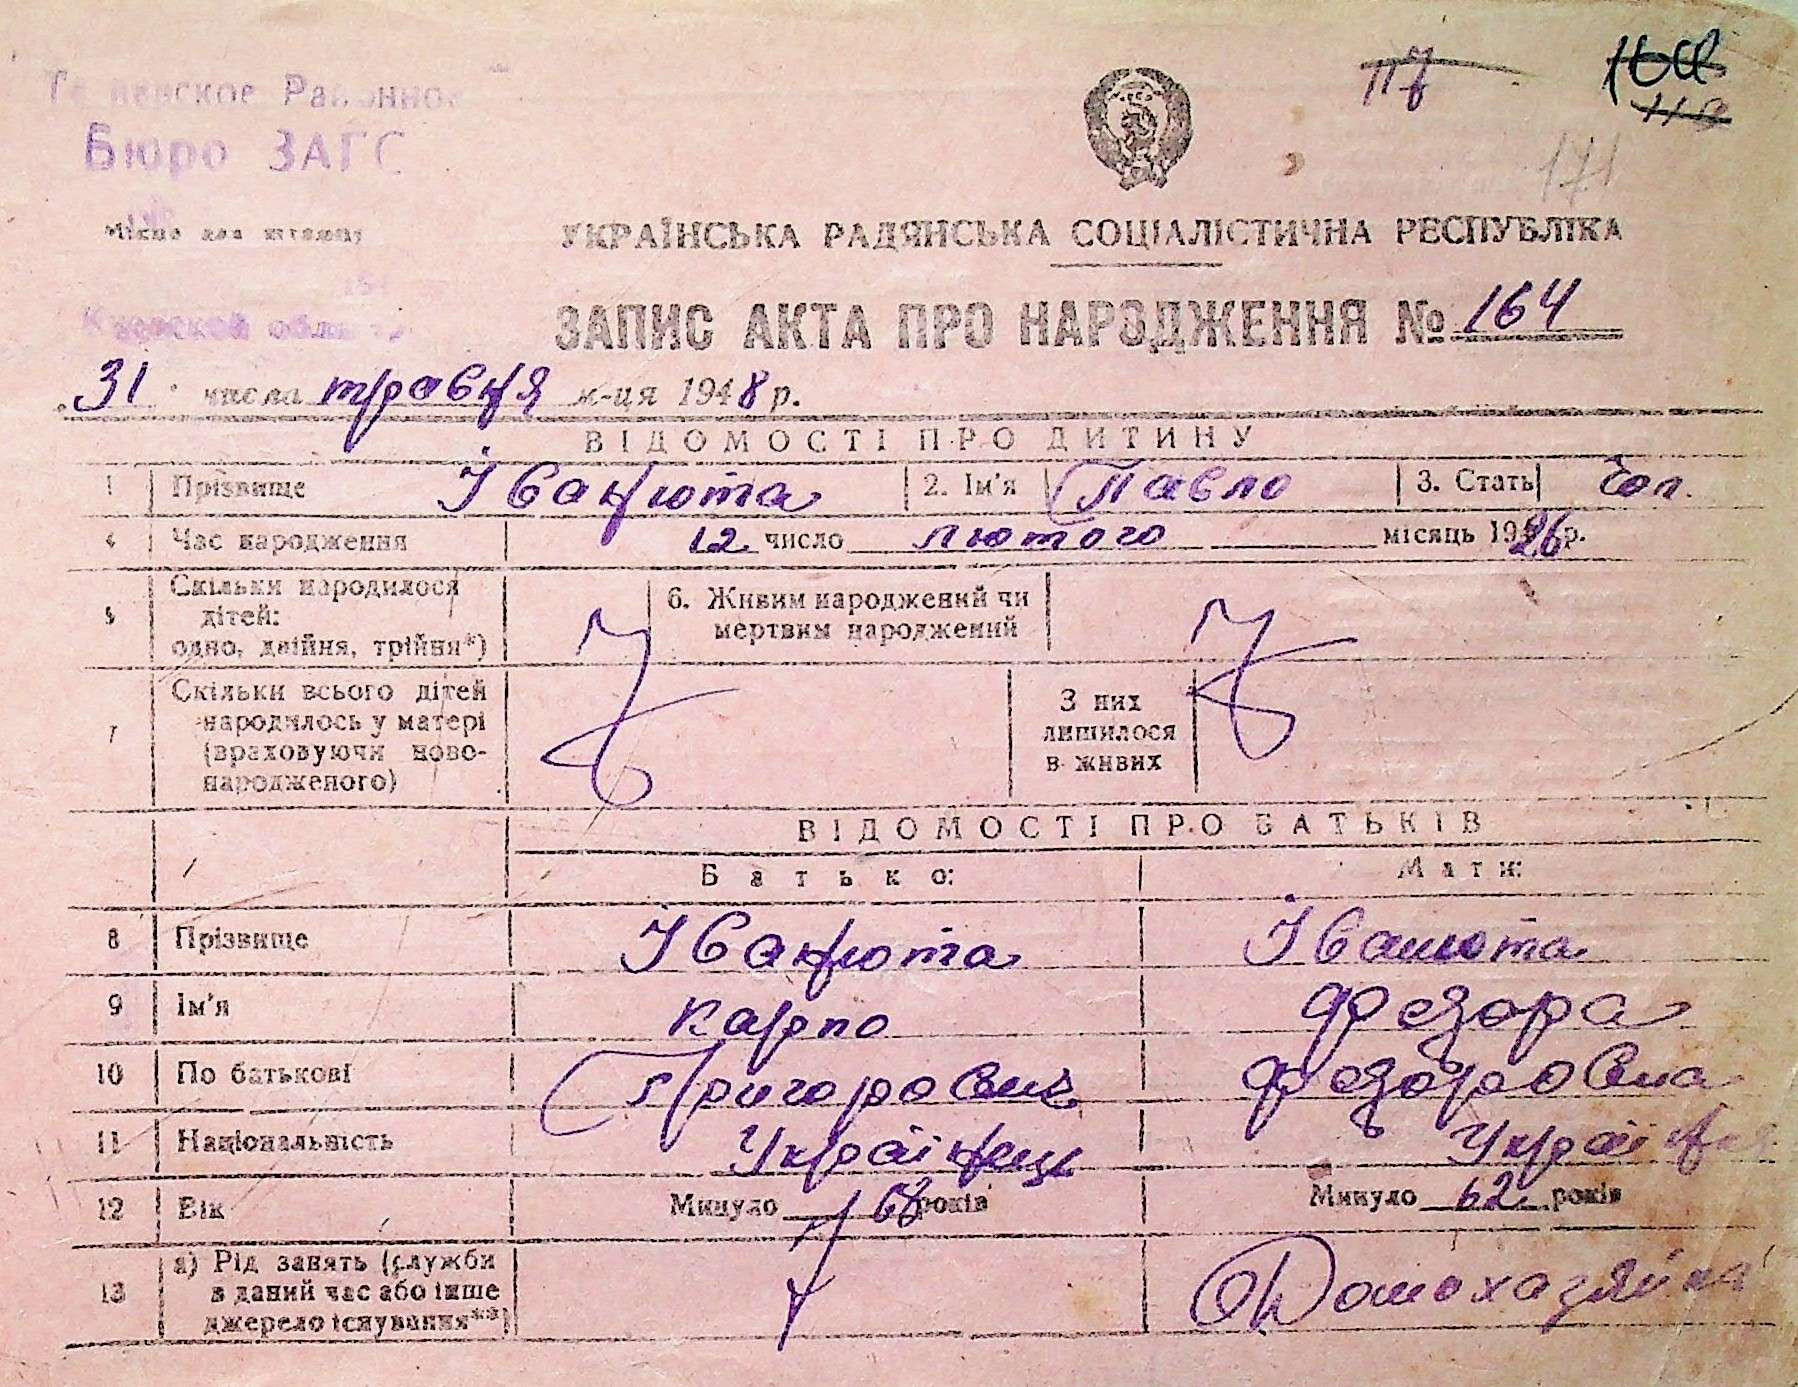 117
168
118
171
Бюро ЗАГС
Місце для штампу
Киевской области
УКРАЇНСЬКА РАДЯНСЬКА СОЦІАЛІСТИЧНА РЕСПУБЛІКА
ЗАПИС АКТА ПРО НАРОДЖЕННЯ № 164
31 числа травня м-ця 1948 р.
ВІДОМОСТІ ПРО ДИТИНУ
1 Прізвище Іванюта 2. Ім'я Павло 3. Стать Чол.
4 Час народження 12 число лютого місяць 1926 р.
5 Скільки народилося
дітей:
одно, двійня, трійня*)
6. Живим народжений чи
мертвим народжений
7 Скільки всього дітей
народилось у матері
(враховуючи ново-
народженого)
З них
лишилося
в живих
ВІДОМОСТІ ПРО БАТЬКІВ
Батько: Мати:
8 Прізвище Іванюта Іванюта
9 Ім'я Карпо Федора
10 По батькові Григорович Федоровна
11 Національність Українець Українка
12 Вік Минуло 68 років Минуло 62 років
13 а) Рід занять (служби
в даний час або інше
джерело існування**)
Домохазяйка